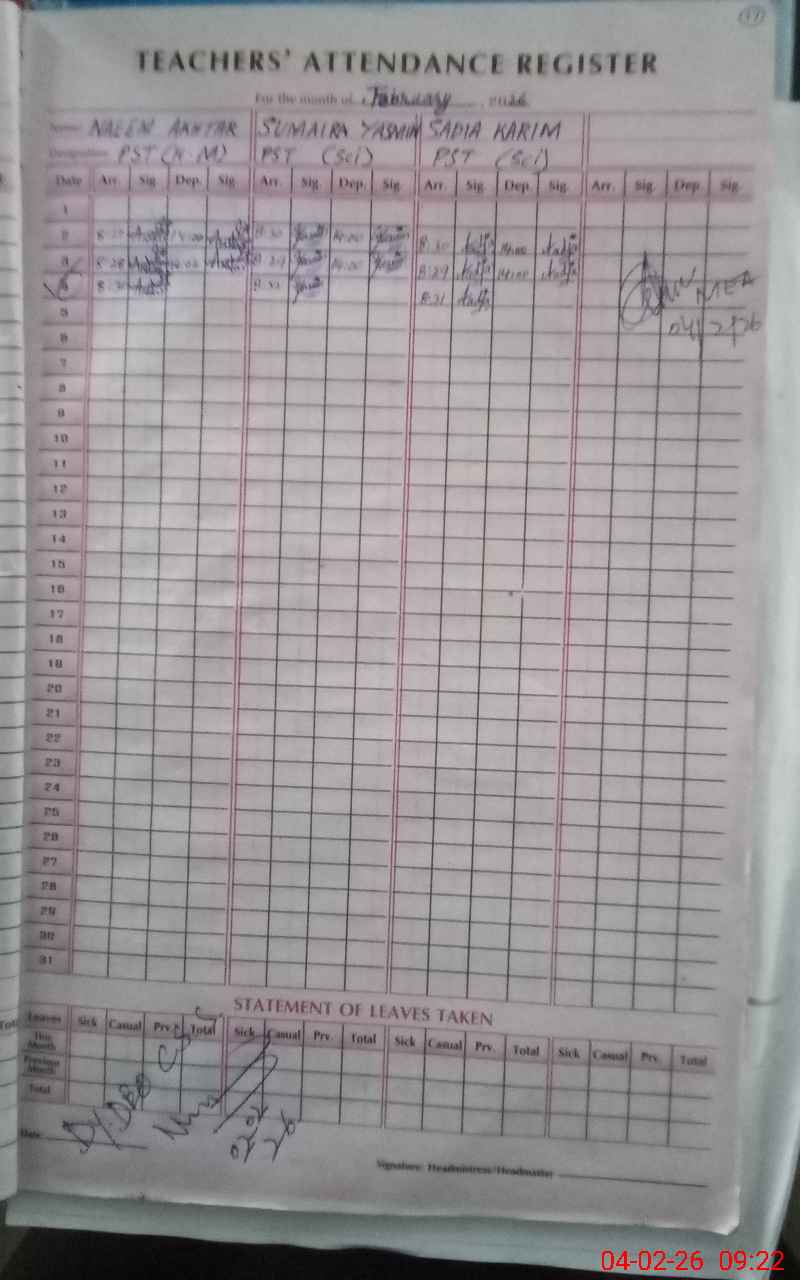 17
TEACHERS' ATTENDANCE REGISTER
For the month of February, 2026
Name NAEEM AKHTAR SUMAIRA YASMIN SADIA KARIM
Designation PST (H.M) PST (Sci) PST (Sci)
Date Arr. Sig. Dep. Sig. Arr. Sig. Dep. Sig. Arr. Sig. Dep. Sig. Arr. Sig. Dep. Sig.
1
2 8:30 14:00 8:30 14:00
3 8:28 14:00 8:29 14:00 8:29 14:00
4 8:30 8:30 8:31
5
04/2/26
6
7
8
9
10
11
12
13
14
15
16
17
18
19
20
21
22
23
24
25
26
27
28
29
30
31
STATEMENT OF LEAVES TAKEN
Leaves Sick Casual Prv. Total Sick Casual Prv. Total Sick Casual Prv. Total Sick Casual Prv. Total
This Month
Previous Month
Total
02/02
26
Date
Signature: Headmistress/Headmaster
04-02-26 09:22